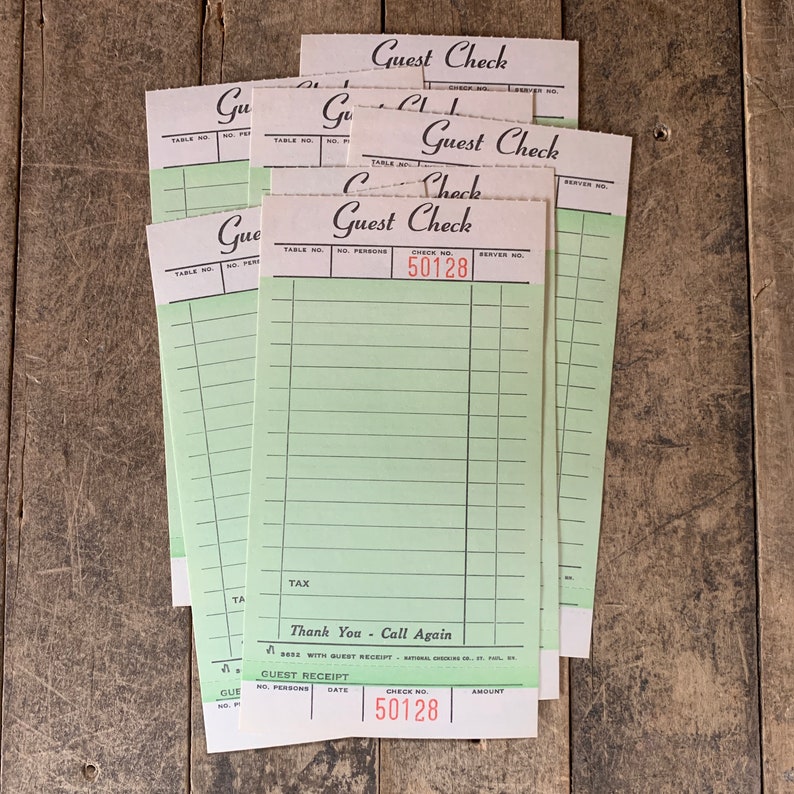 Guest Check
CHECK NO. SERVER NO.
Gue
TABLE NO. NO. PERSONS
Guest Check
TABLE NO. NO. PERSONS
Guest Check
TABLE NO.
SERVER NO.
Guest Check
Gue
TABLE NO. NO. PERS
TA
GUEST
NO. PERSONS
Guest Check
TABLE NO. NO. PERSONS CHECK NO. SERVER NO.
50128
TAX
Thank You - Call Again
3632 WITH GUEST RECEIPT - NATIONAL CHECKING CO., ST. PAUL, MN.
GUEST RECEIPT
NO. PERSONS DATE CHECK NO. AMOUNT
50128